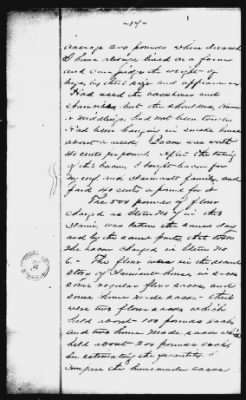 -14-
average 200 pounds when dressed
I have always lived on a farm
and can judge the weight of
hogs by their size and appearance
Had used the backbones and
but the shoulders, hams
& middlings had not been
Had been hanging in smoke house
about a week. Bacon was worth
40 cents per pound. After the taking
of this bacon, I bought bacon for
myself and family, and
paid 40 cents a pound for it
The 800 pounds of flour
charged as Item No 7 in this
claim, was taken the same day
and by the same party that took
the bacon charged in Item No
6. - The flour was in the second
story of house in sacks
some regular flour sacks, and
some home made sacks - there
were two flour sacks which
held about 100 pounds each
and two home made sacks which
held about 200 pounds each
by estimating the quantity. I
compare the home made sacks